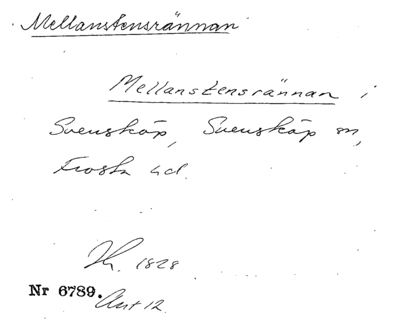 Mellanstensrännan
Mellanstensrännan i
Svensköp, Svensköp sn,
Frosta hd.
1828
Nr 6789.
Akt 12